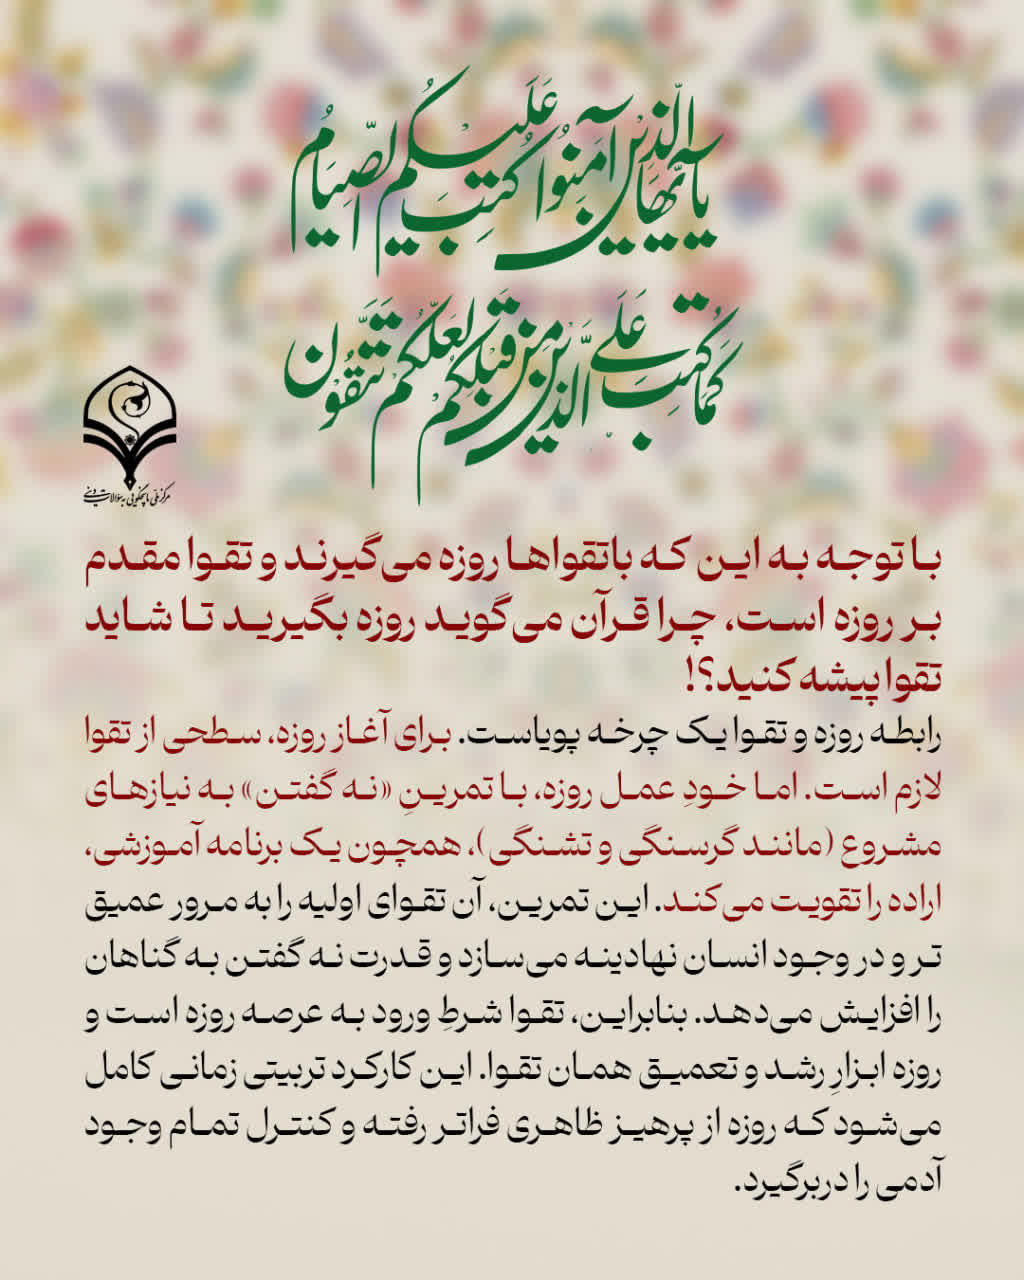 یَا أَیُّهَا الَّذِینَ آمَنُوا کُتِبَ عَلَیْکُمُ الصِّیَامُ
کَمَا کُتِبَ عَلَی الَّذِینَ مِنْ قَبْلِکُمْ لَعَلَّکُمْ تَتَّقُونَ
مرکز ملی پاسخگویی به سؤالات دینی
با توجه به این که باتقواها روزه می‌گیرند و تقوا مقدم
بر روزه است، چرا قرآن می‌گوید روزه بگیرید تا شاید
تقوا پیشه کنید؟!
رابطه روزه و تقوا یک چرخه پویاست. برای آغاز روزه، سطحی از تقوا
لازم است. اما خودِ عمل روزه، با تمرینِ «نه گفتن» به نیازهای
مشروع (مانند گرسنگی و تشنگی)، همچون یک برنامه آموزشی،
اراده را تقویت می‌کند. این تمرین، آن تقوای اولیه را به مرور عمیق
تر و در وجود انسان نهادینه می‌سازد و قدرت نه گفتن به گناهان
را افزایش می‌دهد. بنابراین، تقوا شرطِ ورود به عرصه روزه است و
روزه ابزارِ رشد و تعمیق همان تقوا. این کارکرد تربیتی زمانی کامل
می‌شود که روزه از پرهیز ظاهری فراتر رفته و کنترل تمام وجود
آدمی را دربرگیرد.